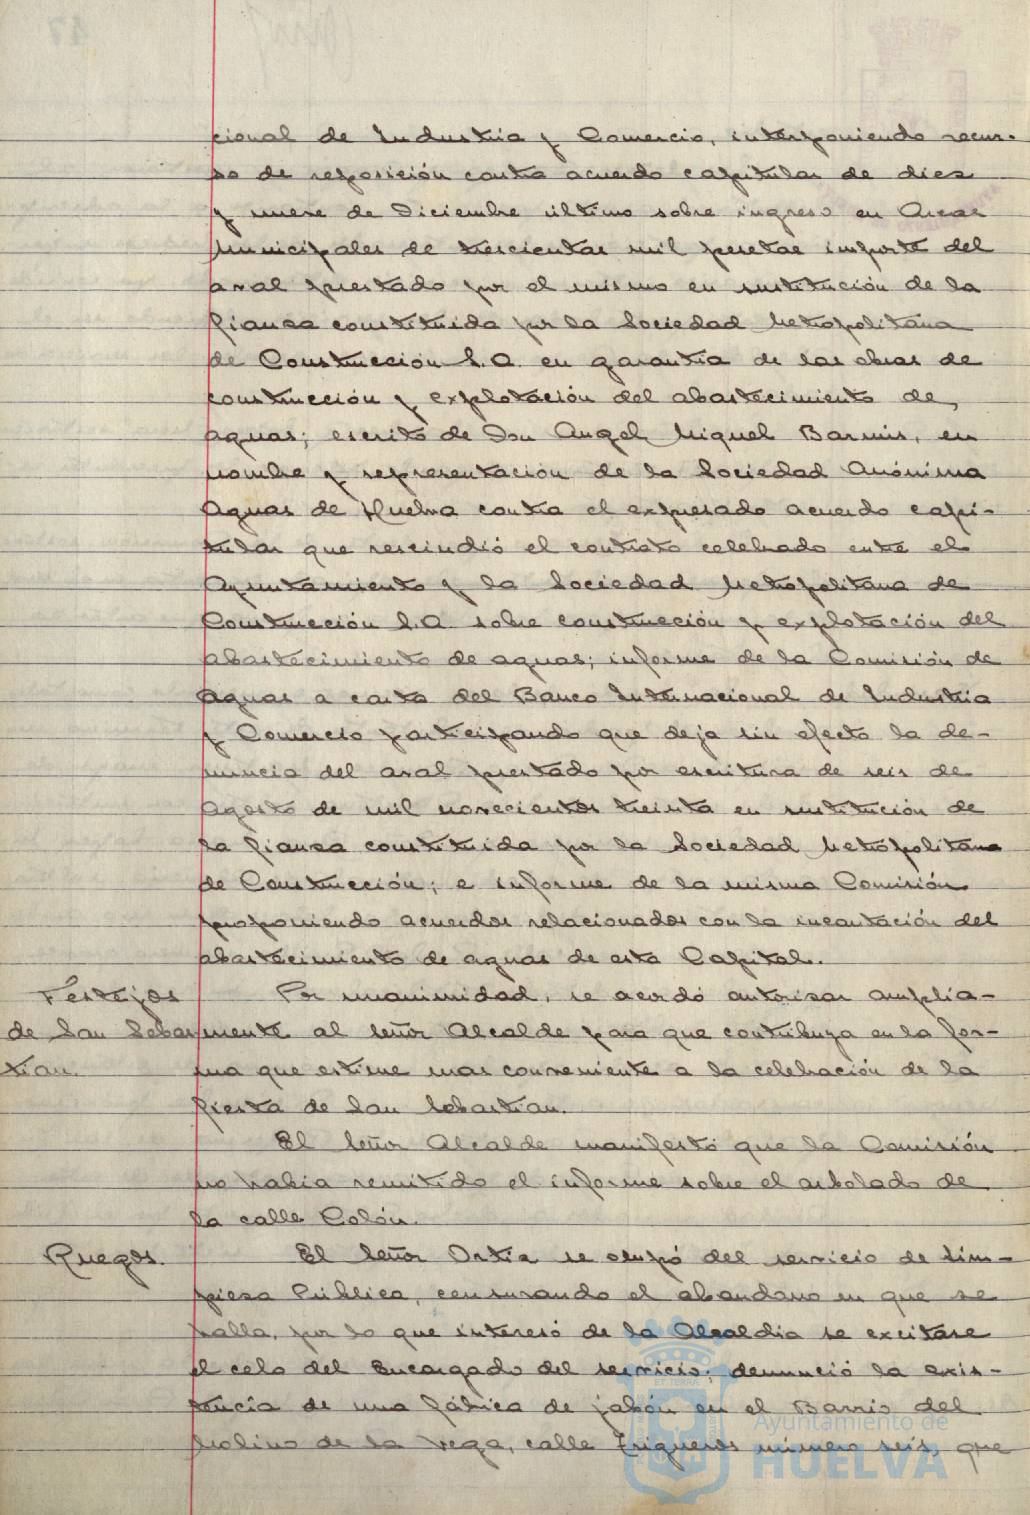 cional de Industria y Comercio, interponiendo recur-
so de reposición contra acuerdo capitular de diez
y nueve de Diciembre último sobre ingreso en Arcas
Municipales de trescientas mil pesetas importe del
aval prestado por el mismo en sustitución de la
fianza constituida por la Sociedad Metropolitana
de Construcción S.A. en garantía de las obras de
construcción y explotación del abastecimiento de
aguas; escrito de Don Angel Miguel en
nombre y representación de la Sociedad Anónima
Aguas de Huelva contra el expresado acuerdo capi-
tular que rescindió el contrato celebrado entre el
Ayuntamiento y la Sociedad Metropolitana de
Construcción S.A. sobre construcción y explotación del
abastecimiento de aguas; informe de la Comisión de
Aguas a carta del Banco Internacional de Industria
y Comercio participando que deja sin efecto la de-
nuncia del aval prestado por escritura de seis de
Agosto de mil novecientos treinta en sustitución de
la fianza constituida por la Sociedad Metropolitana
de Construcción; e informe de la misma Comisión
proponiendo acuerdos relacionados con la incautación del
abastecimiento de aguas de esta Capital.
Festejos
de San Sebas
tian.
Por unanimidad, se acordó autorizar amplia-
mente al Señor Alcalde para que contribuya en la for-
ma que estime mas conveniente a la celebración de la
fiesta de San Sebastian.
El Señor Alcalde manifestó que la Comisión
no habia remitido el informe sobre el arbolado de
la calle Colón.
Ruegos.
El Señor Ortiz se ocupó del servicio de Lim-
pieza Pública, censurando el abandono en que se
halla, por lo que interesó de la Alcaldia se excitase
el celo del Encargado del servicio; denunció la exis-
tencia de una fábrica de jabón en el Barrio del
Molino de la Vega, calle Trigueros número seis, que
Ayuntamiento de
HUELVA